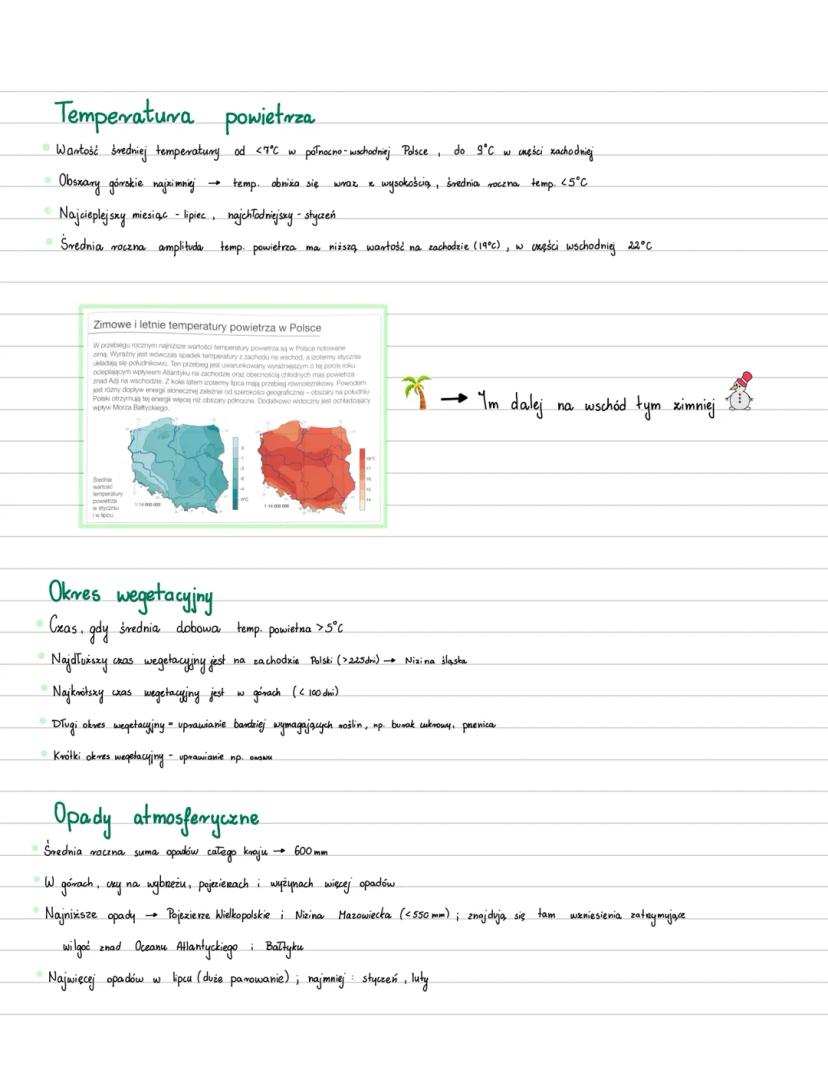 Temperatura powietrza
Wartość średniej temperatury od <7°C w północno-wschodniej Polsce, do 9°C w części zachodniej
Obszary górskie najzimniej → temp. obniża się wraz z wysokością, średnia roczna temp. <5°C
Najcieplejszy miesiąc - lipiec, najchłodniejszy - styczeń
Średnia roczna amplituda temp. powietrza ma niższą wartość na zachodzie (19°C), w części wschodniej 22°C
Zimowe i letnie temperatury powietrza w Polsce
W przebiegu rocznym najniższe wartości temperatury powietrza są w Polsce notowane
zimą. Wyraźny jest wówczas spadek temperatury z zachodu na wschód, a izotermy stycznia
układają się południkowo. Ten przebieg jest uwarunkowany wyraźniejszym o tej porze roku
ocieplającym wpływem Atlantyku na zachodzie oraz obecnością chłodnych mas powietrza
znad Azji na wschodzie. Z kolei latem izotermy lipca mają przebieg równoleżnikowy. Powodem
jest różny dopływ energii słonecznej zależnie od szerokości geograficznej – obszary na południu
Polski otrzymują tej energii więcej niż obszary północne. Dodatkowo widoczny jest ochładzający
wpływ Morza Bałtyckiego.
→ Im dalej na wschód tym zimniej
Średnia
wartość
temperatury
powietrza
w styczniu
i w lipcu.
1:14 000 000
1:14 000 000
Okres wegetacyjny
Czas, gdy średnia dobowa temp. powietrza >5°C
Najdłuższy czas wegetacyjny jest na zachodzie Polski (>225dni) → Nizina śląska
Najkrótszy czas wegetacyjny jest w górach (< 100 dni)
Długi okres wegetacyjny - uprawianie bardziej wymagających roślin, np. burak cukrowy, pszenica
Krótki okres wegetacyjny - uprawianie np. owsa
Opady atmosferyczne
Średnia roczna suma opadów całego kraju → 600 mm
W górach, czy na wybrzeżu, pojezierzach i wyżynach więcej opadów
Najniższe opady → Pojezierze Wielkopolskie i Nizina Mazowiecka (<550 mm) ; znajdują się tam wzniesienia zatrzymujące
wilgoć znad Oceanu Atlantyckiego i Bałtyku
Najwięcej opadów w lipcu (duże parowanie) ; najmniej : styczeń, luty